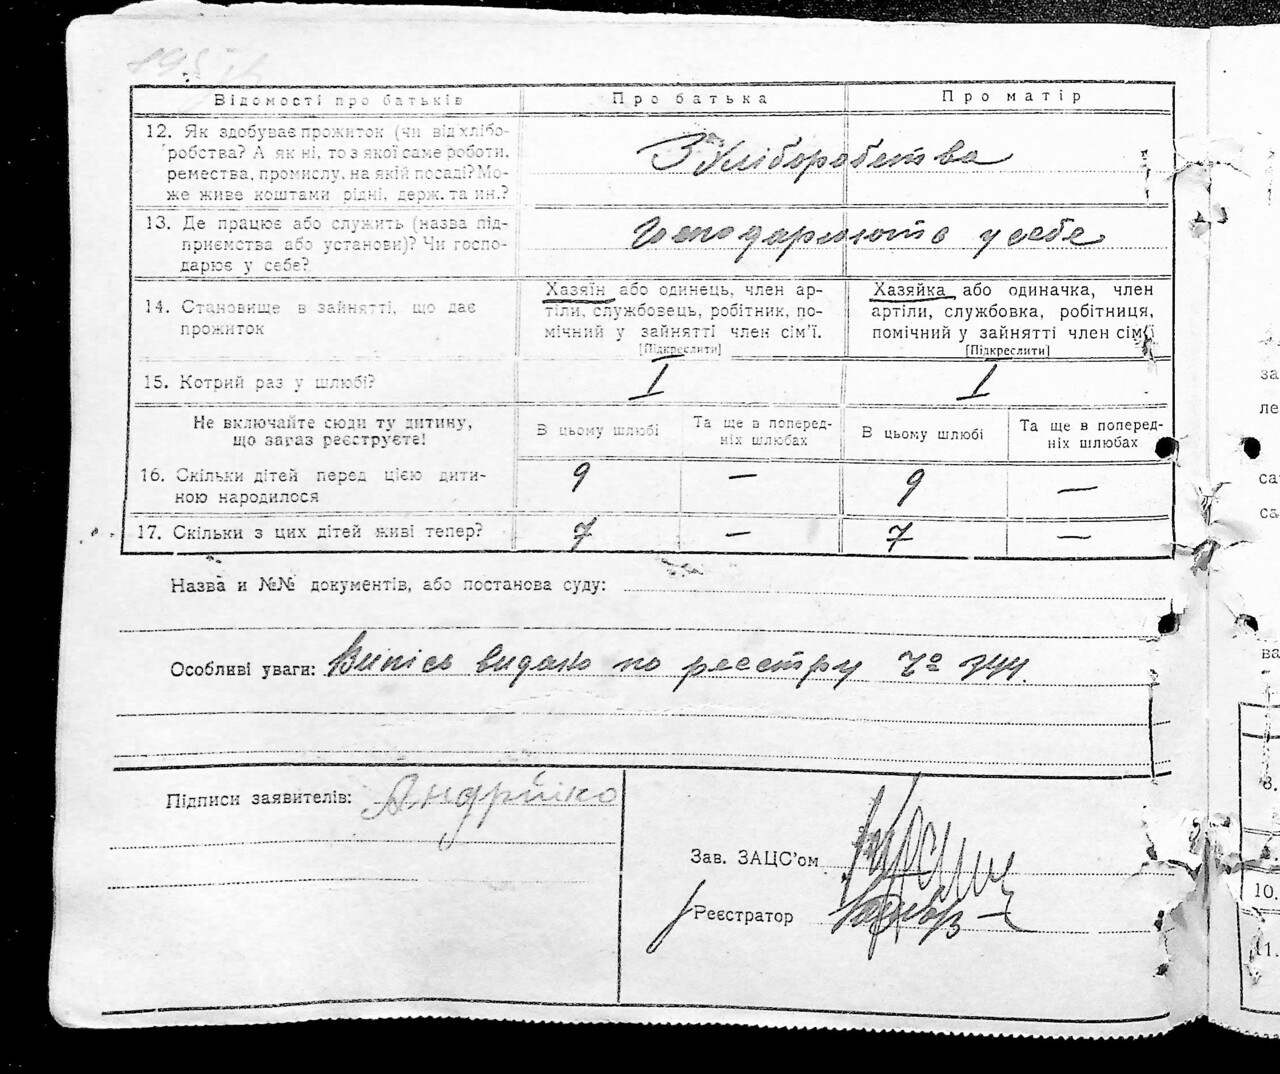 Відомості про батьків Про батька Про матір
12. Як здобуває прожиток (чи від хлібо-
робства? А як ні, то з якої саме роботи,
ремества, промислу, на якій посаді? Мо-
же живе коштами рідні, держ. та ин.?
З хліборобства
13. Де працює або служить (назва під-
приємства або установи)? Чи госпо-
дарює у себе?
Господарюють у себе
14. Становище в зайнятті, що дає
прожиток
Хазяїн або одинець, член ар-
тілі, службовець, робітник, по-
мічний у зайнятті член сім'ї.
[Підкреслити]
Хазяйка або одиначка, член
артіли, службовка, робітниця,
помічний у зайнятті член сім'ї
[Підкреслити]
15. Котрий раз у шлюбі? I I
Не включайте сюди ту дитину,
що зараз реєструєте!
В цьому шлюбі
Та ще в поперед-
ніх шлюбах
В цьому шлюбі
Та ще в поперед-
ніх шлюбах
16. Скільки дітей перед цією дити-
ною народилося
9 — 9 —
17. Скільки з цих дітей живі тепер? 7 — 7 —
Назва и №№ документів, або постанова суду:
Особливі уваги: Випись видано по реєстру
Підписи заявителів: Андрійко
Зав. ЗАЦС'ом
Реєстратор
за
ле
са
са
ва
8.
10.
11.